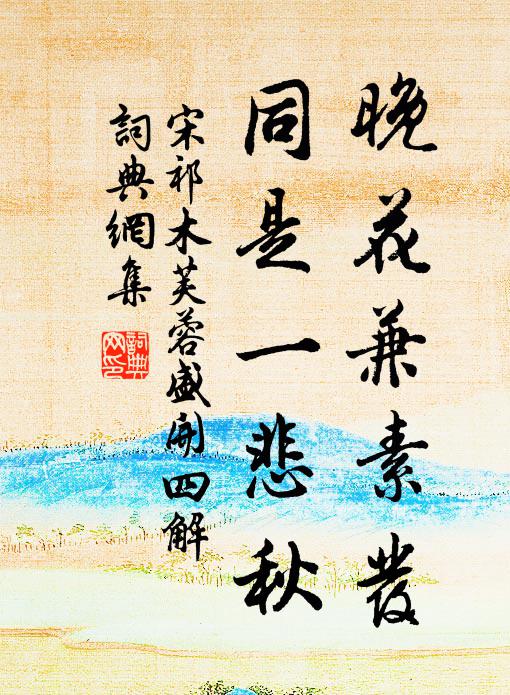 晚花兼素髮
同是一悲秋
宋祁木芙蓉盛開四解
詞典網集
詞典
网印